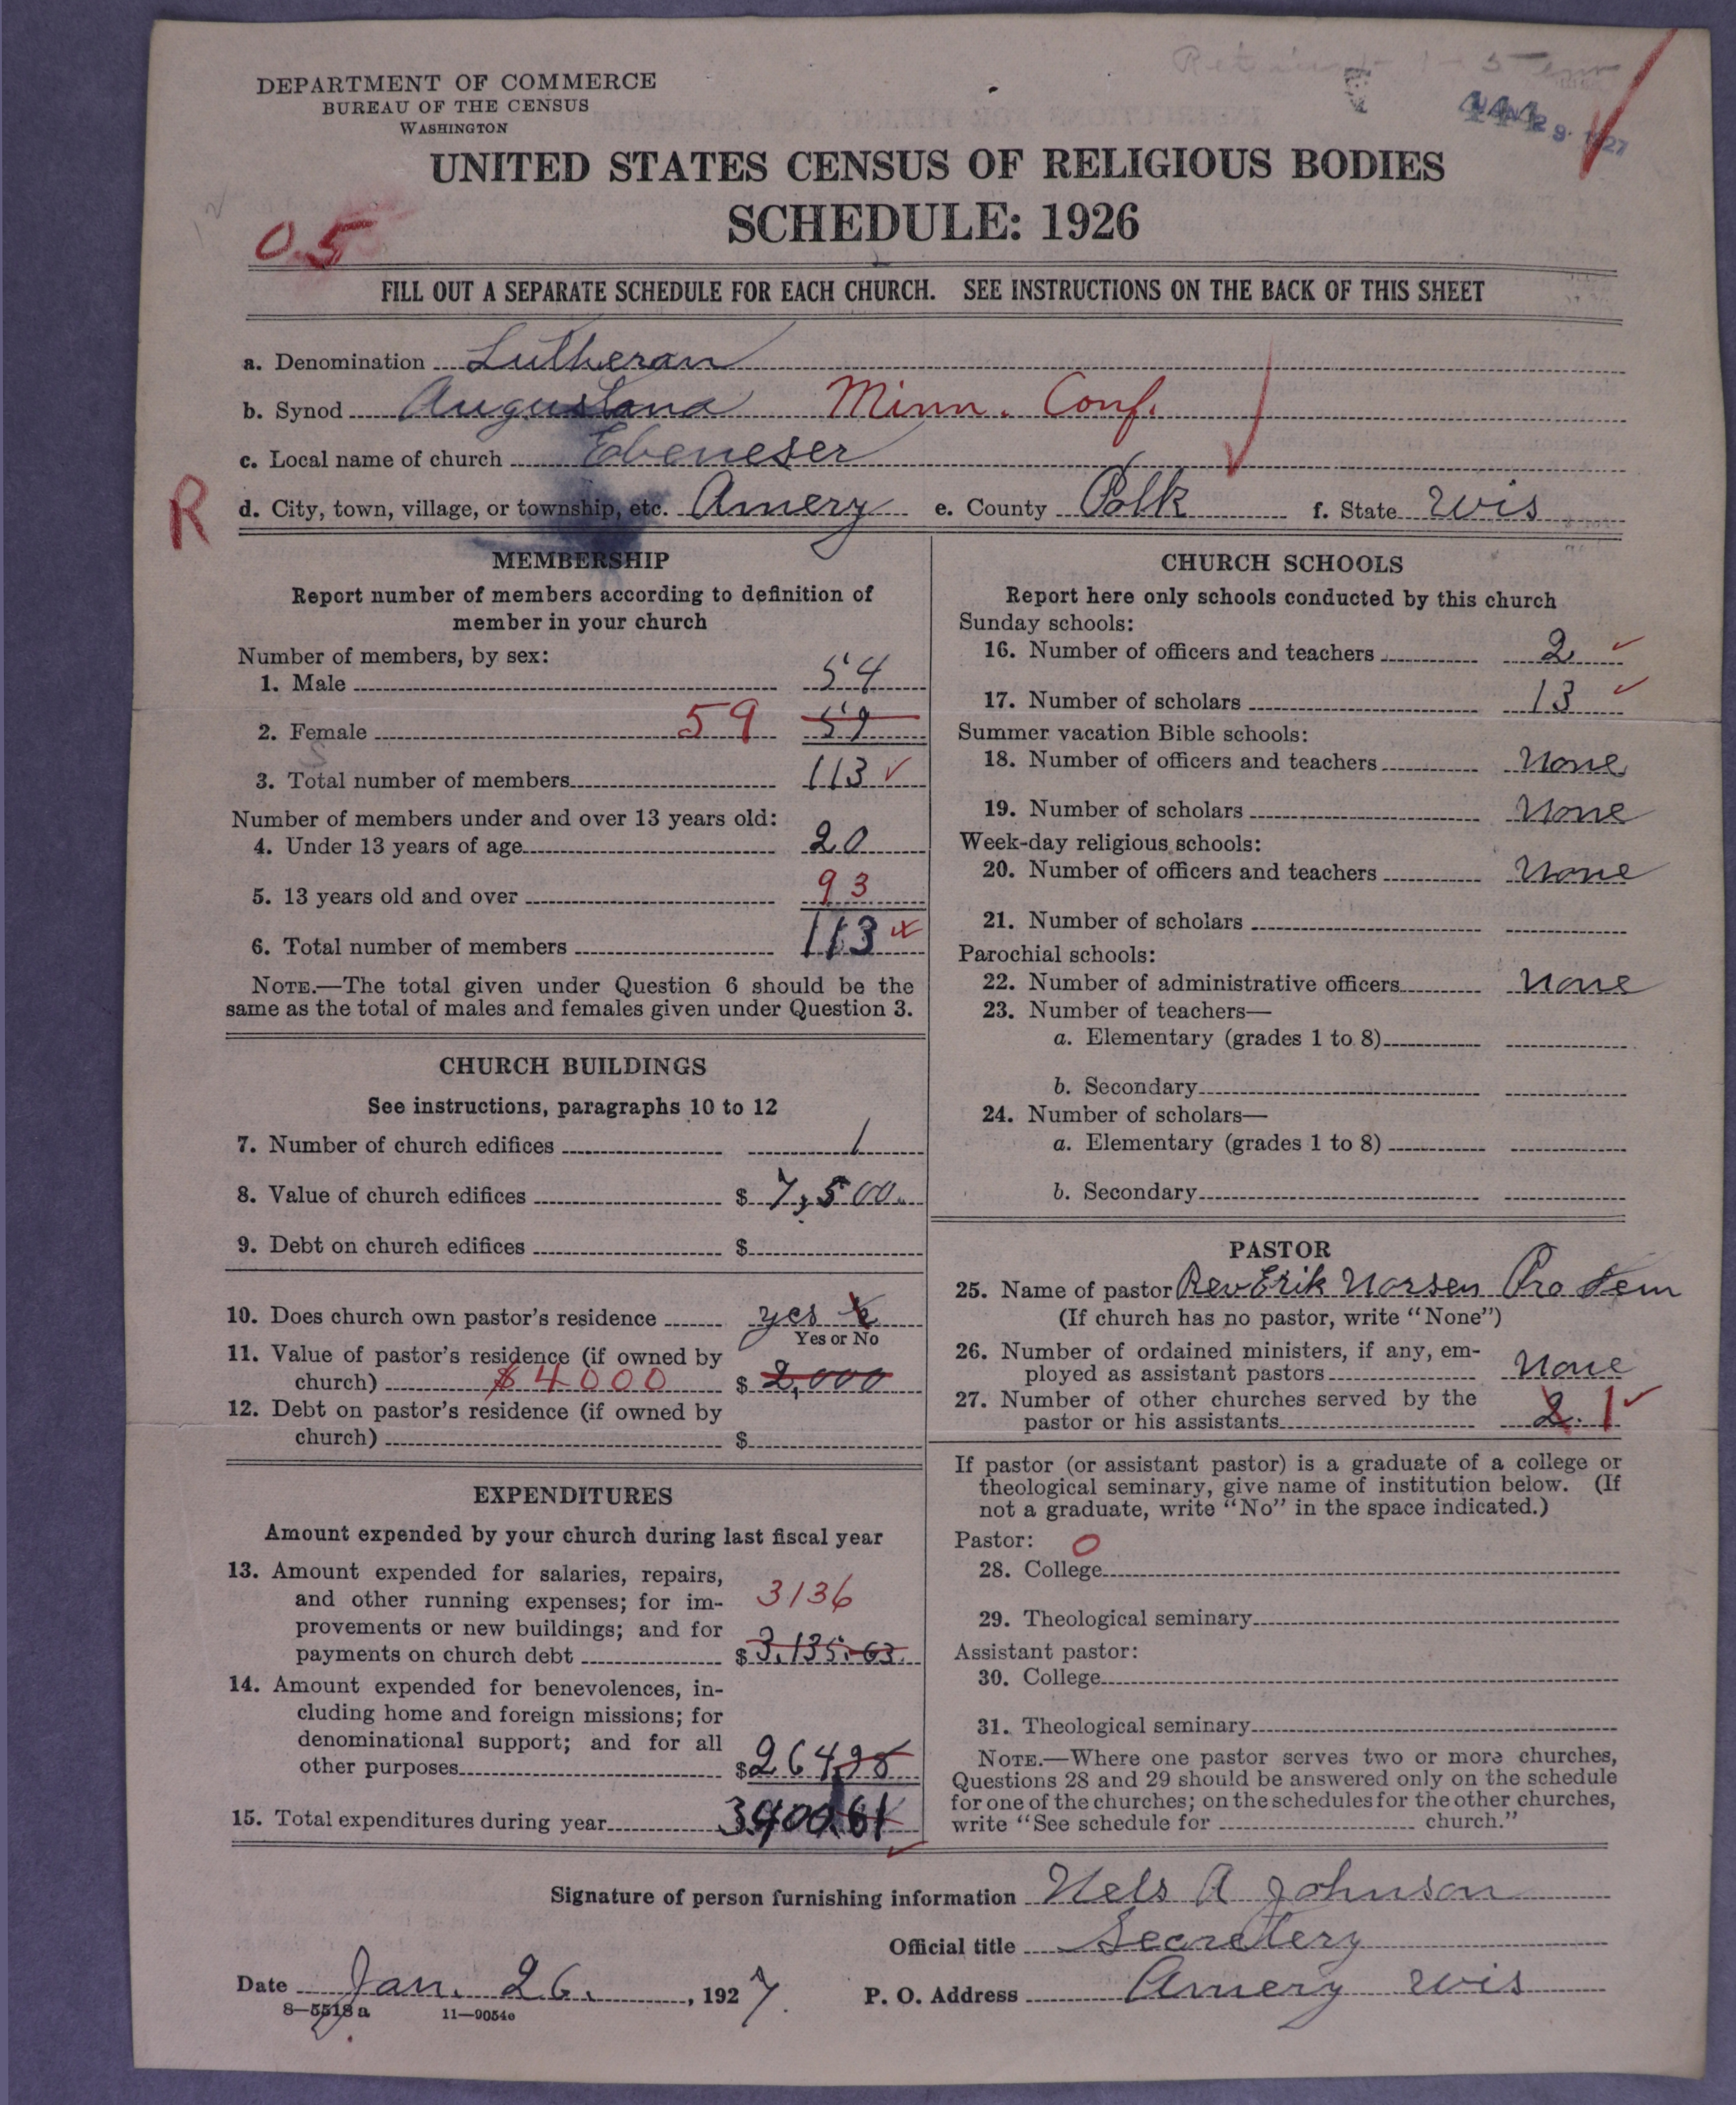 DEPARTMENT OF COMMERCE
BUREAU OF THE CENSUS
WASHINGTON
UNITED STATES CENSUS OF RELIGIOUS BODIES
SCHEDULE: 1926
0.5
FILL OUT A SEPARATE SCHEDULE FOR EACH CHURCH. SEE INSTRUCTIONS ON THE BACK OF THIS SHEET
a. Denomination Lutheran
b. Synod Augustana Minn. Conf.
c. Local name of church Ebeneser
R
d. City, town, village, or township, etc. Amery e. County Polk f. State Wis
MEMBERSHIP
Report number of members according to definition of
member in your church
Number of members, by sex:
1. Male 54
2. Female 59 59
3. Total number of members 113
Number of members under and over 13 years old:
4. Under 13 years of age 20
5. 13 years old and over 93
6. Total number of members 113
NOTE.—The total given under Question 6 should be the
same as the total of males and females given under Question 3.
CHURCH BUILDINGS
See instructions, paragraphs 10 to 12
7. Number of church edifices 1
8. Value of church edifices $ 7,500.
9. Debt on church edifices $
10. Does church own pastor's residence yes
Yes or No
11. Value of pastor's residence (if owned by
church) $4000 $ 2,000
12. Debt on pastor's residence (if owned by
church) $
EXPENDITURES
Amount expended by your church during last fiscal year
13. Amount expended for salaries, repairs,
and other running expenses; for im-
provements or new buildings; and for
payments on church debt 3136 $ 3,135.63
14. Amount expended for benevolences, in-
cluding home and foreign missions; for
denominational support; and for all
other purposes $ 264.98
15. Total expenditures during year
CHURCH SCHOOLS
Report here only schools conducted by this church
Sunday schools:
16. Number of officers and teachers 2
17. Number of scholars 13
Summer vacation Bible schools:
18. Number of officers and teachers None
19. Number of scholars None
Week-day religious schools:
20. Number of officers and teachers None
21. Number of scholars
Parochial schools:
22. Number of administrative officers None
23. Number of teachers—
a. Elementary (grades 1 to 8)
b. Secondary
24. Number of scholars—
a. Elementary (grades 1 to 8)
b. Secondary
PASTOR
25. Name of pastor Rev Erik Norsen Pro Tem
(If church has no pastor, write "None")
26. Number of ordained ministers, if any, em-
ployed as assistant pastors None
27. Number of other churches served by the
pastor or his assistants 2. 1
If pastor (or assistant pastor) is a graduate of a college or
theological seminary, give name of institution below. (If
not a graduate, write "No" in the space indicated.)
Pastor: 0
28. College
29. Theological seminary
Assistant pastor:
30. College
31. Theological seminary
NOTE.—Where one pastor serves two or more churches,
Questions 28 and 29 should be answered only on the schedule
for one of the churches; on the schedules for the other churches,
write "See schedule for church."
Signature of person furnishing information Nels A Johnson
Official title Secretery
Date Jan. 26., 1927. P. O. Address Amery Wis
8—5518 a 11—9054e